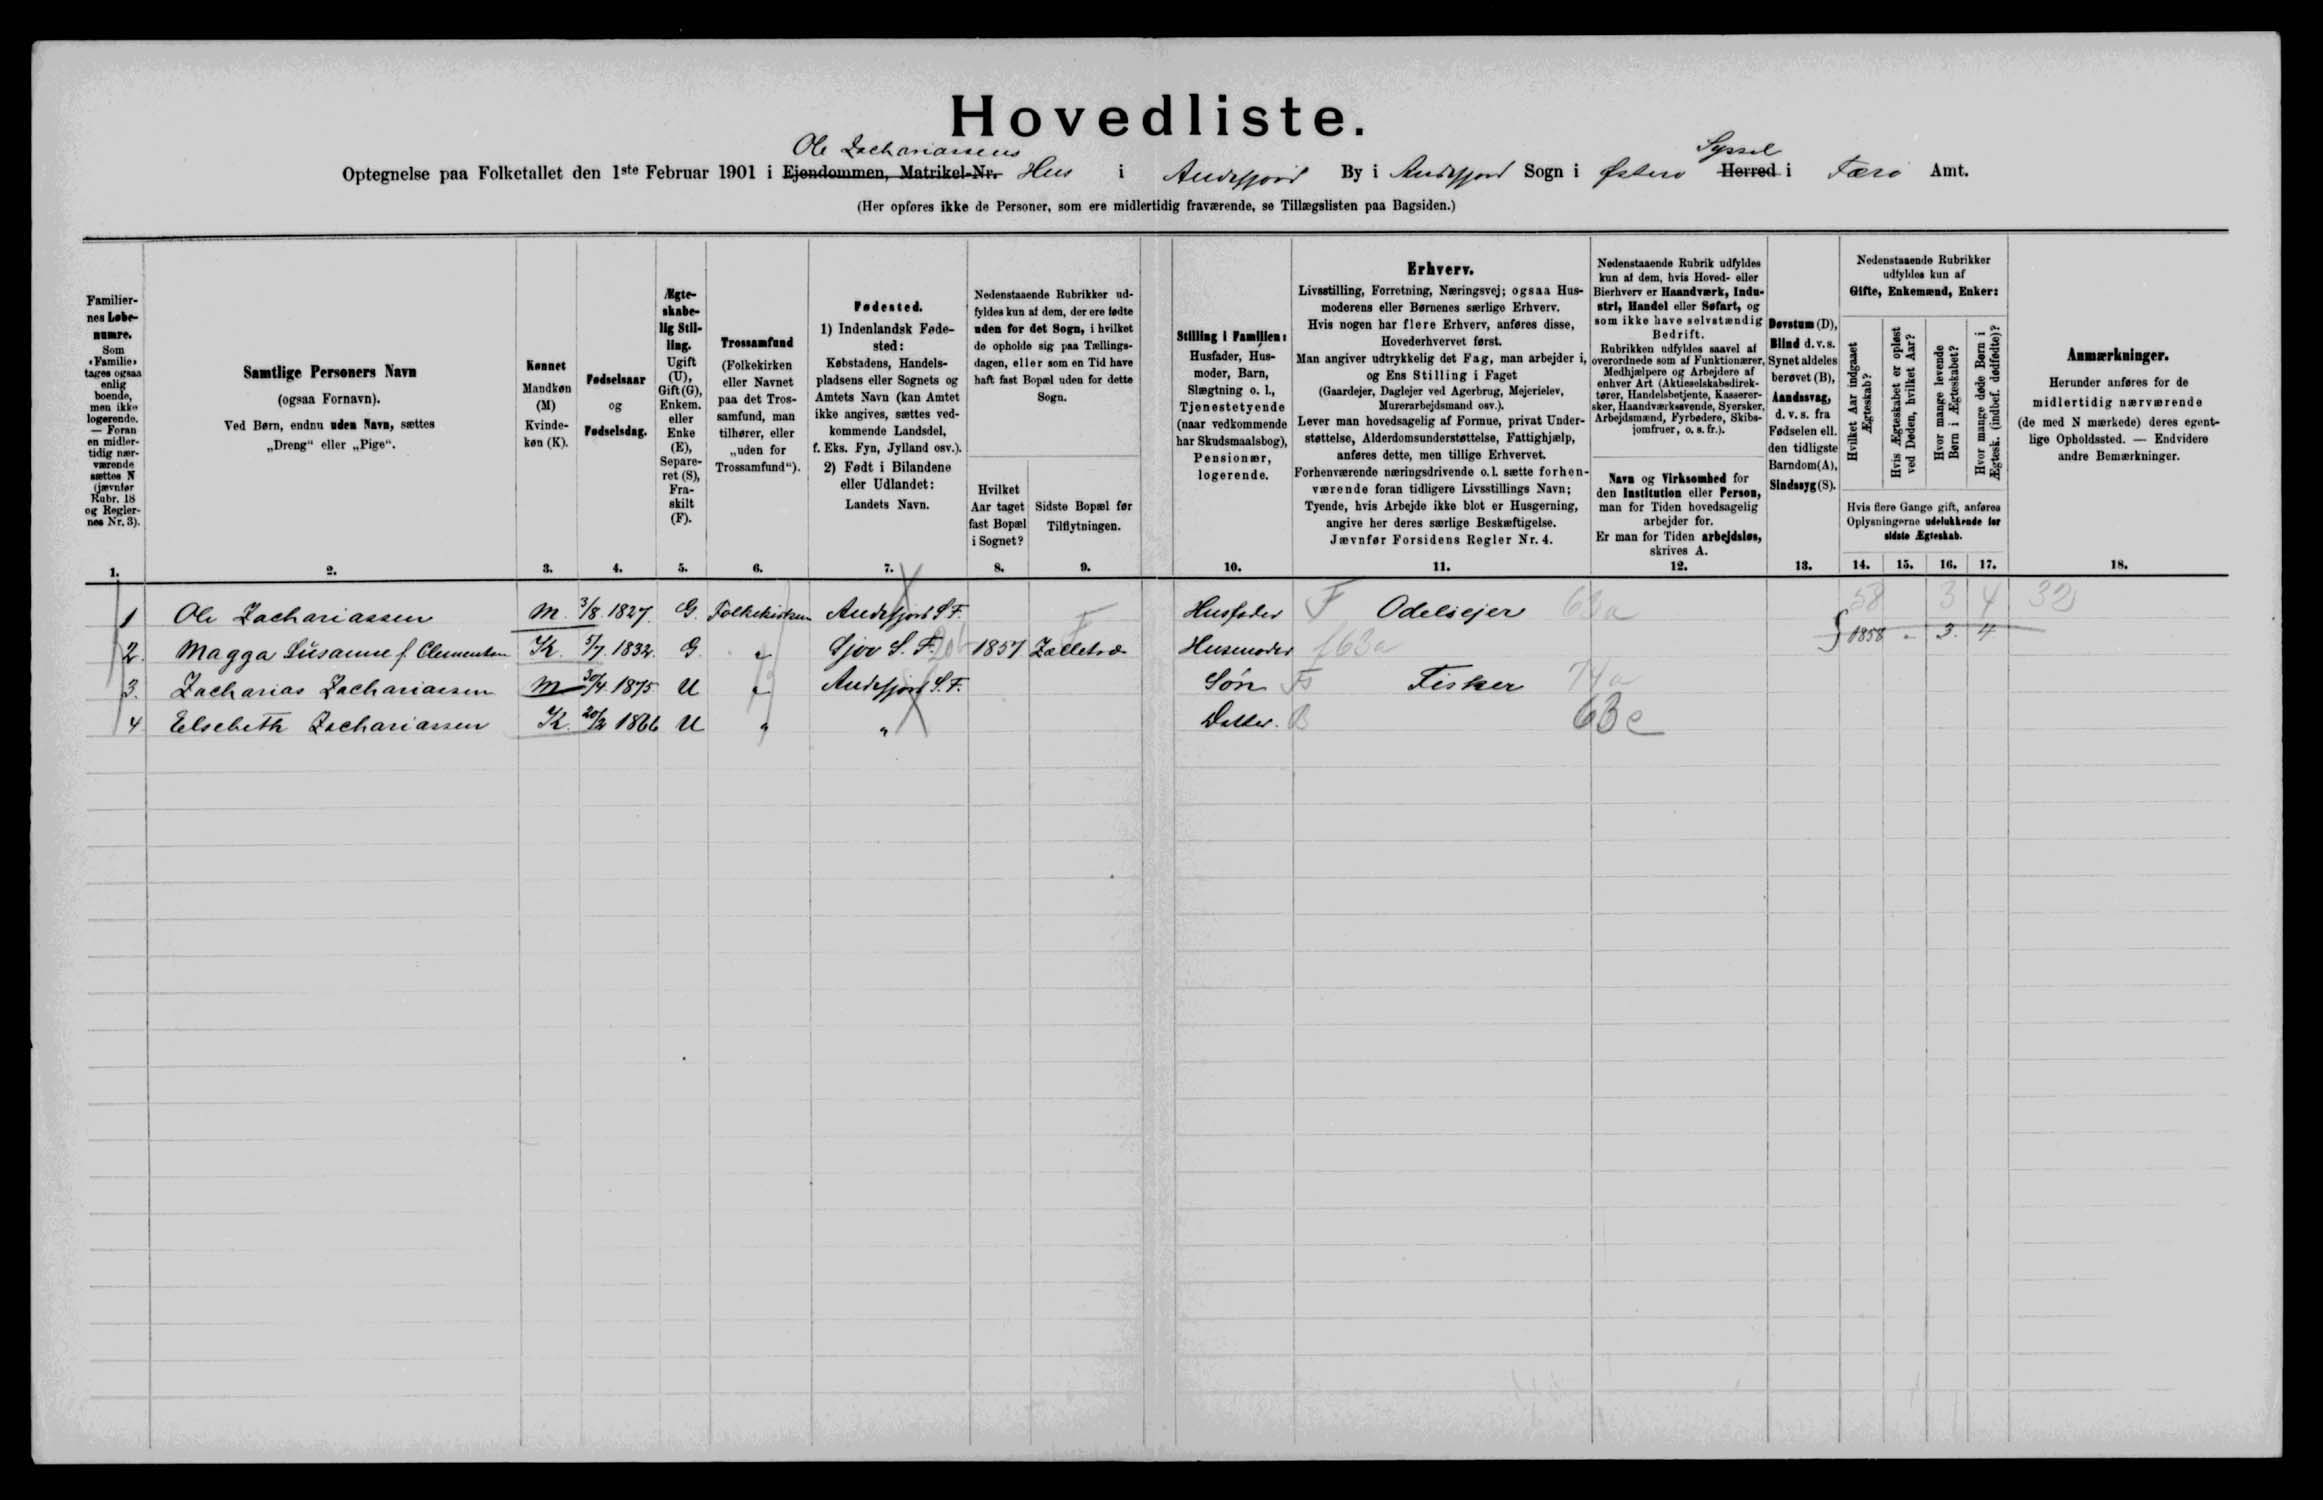 Hovedliste.
Ole Zachariassens
Syssel
Optegnelse paa Folketallet den 1ste Februar 1901 i Ejendommen, Matrikel-Nr. Hus i Andefjord By i Andefjord Sogn i Østerø Herred i Færø Amt.
(Her opføres ikke de Personer, som ere midlertidig fraværende, se Tillægslisten paa Bagsiden.)
Familier-
nes Løbe-
numre.
Som
«Familie»
tages ogsaa
enlig
boende,
men ikke
logerende.
— Foran
en midler-
tidig nær-
værende
sættes N
(jævnfør
Rubr. 18
og Regler-
nes Nr. 3).
1.
Samtlige Personers Navn
(ogsaa Fornavn).
Ved Børn, endnu uden Navn, sættes
„Dreng“ eller „Pige“.
2.
Kønnet
Mandkøn
(M)
Kvinde-
køn (K).
3.
Fødselsaar
og
Fødselsdag.
4.
Ægte-
skabe-
lig Stil-
ling.
Ugift
(U),
Gift (G),
Enkem.
eller
Enke
(E),
Separe-
ret (S),
Fra-
skilt
(F).
5.
Trossamfund
(Folkekirken
eller Navnet
paa det Tros-
samfund, man
tilhører, eller
„uden for
Trossamfund“).
6.
Fødested.
1) Indenlandsk Føde-
sted:
Købstadens, Handels-
pladsens eller Sognets og
Amtets Navn (kan Amtet
ikke angives, sættes ved-
kommende Landsdel,
f. Eks. Fyn, Jylland osv.).
2) Født i Bilandene
eller Udlandet:
Landets Navn.
7.
Nedenstaaende Rubrikker ud-
fyldes kun af dem, der ere fødte
uden for det Sogn, i hvilket
de opholde sig paa Tællings-
dagen, eller som en Tid have
haft fast Bopæl uden for dette
Sogn.
Hvilket
Aar taget
fast Bopæl
i Sognet?
8.
Sidste Bopæl før
Tilflytningen.
9.
Stilling i Familien:
Husfader, Hus-
moder, Barn,
Slægtning o. l.,
Tjenestetyende
(naar vedkommende
har Skudsmaalsbog),
Pensionær,
logerende.
10.
Erhverv.
Livsstilling, Forretning, Næringsvej; ogsaa Hus-
moderens eller Børnenes særlige Erhverv.
Hvis nogen har flere Erhverv, anføres disse,
Hovederhvervet først.
Man angiver udtrykkelig det Fag, man arbejder i,
og Ens Stilling i Faget
(Gaardejer, Daglejer ved Agerbrug, Mejerielev,
Murerarbejdsmand osv.).
Lever man hovedsagelig af Formue, privat Under-
støttelse, Alderdomsunderstøttelse, Fattighjælp,
anføres dette, men tillige Erhvervet.
Forhenværende næringsdrivende o. l. sætte forhen-
værende foran tidligere Livsstillings Navn;
Tyende, hvis Arbejde ikke blot er Husgerning,
angive her deres særlige Beskæftigelse.
Jævnfør Forsidens Regler Nr. 4.
11.
Nedenstaaende Rubrik udfyldes
kun af dem, hvis Hoved- eller
Bierhverv er Haandværk, Indu-
stri, Handel eller Søfart, og
som ikke have selvstændig
Bedrift.
Rubrikken udfyldes saavel af
overordnede som af Funktionærer,
Medhjælpere og Arbejdere af
enhver Art (Aktieselskabsdirek-
tører, Handelsbetjente, Kasserer-
sker, Haandværkssvende, Syersker,
Arbejdsmænd, Fyrbødere, Skibs-
jomfruer, o. s. fr.).
Navn og Virksomhed for
den Institution eller Person,
man for Tiden hovedsagelig
arbejder for.
Er man for Tiden arbejdsløs,
skrives A.
12.
Døvstum (D),
Blind d. v. s.
Synet aldeles
berøvet (B),
Aandssvag,
d. v. s. fra
Fødselen ell.
den tidligste
Barndom (A),
Sindssyg (S).
13.
Nedenstaaende Rubrikker
udfyldes kun af
Gifte, Enkemænd, Enker:
Hvilket Aar indgaaet
Ægteskab?
Hvis Ægteskabet er opløst
ved Døden, hvilket Aar?
Hvor mange levende
Børn i Ægteskabet?
Hvor mange døde Børn i
Ægtesk. (indbef. dødfødte)?
Hvis flere Gange gift, anføres
Oplysningerne udelukkende for
sidste Ægteskab.
14. 15. 16. 17.
Anmærkninger.
Herunder anføres for de
midlertidig nærværende
(de med N mærkede) deres egent-
lige Opholdssted. — Endvidere
andre Bemærkninger.
18.
1 Ole Zachariassen M. 3/8 1827. G. Folkekirken Andefjord S. F. Husfader F Odelsejer 63a 58 3 4 32
2. Magga Susanne f. Clementsen K. 5/7 1832. G. „ Sjov S. F. 1857 Zelletræ Husmoder f63a 1858 „ 3. 4
3. Zacharias Zachariassen M 30/4 1875 U „ Andefjord S. F. Søn Fs Fisker 74a
4 Elsebeth Zachariassen K. 20/2 1866 U „ „ Datter. B 63c